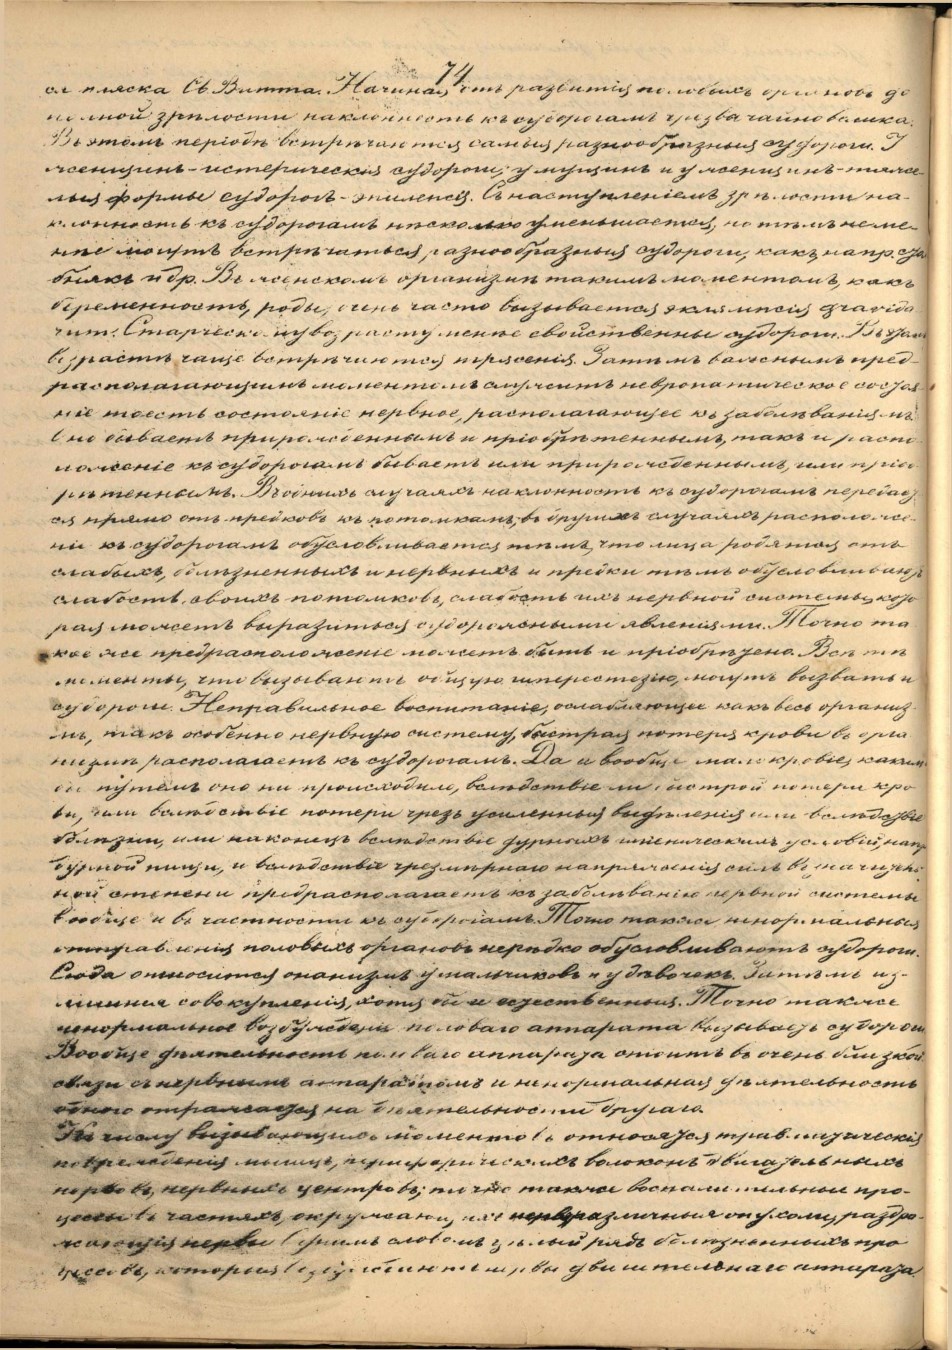 74
ся пляска Св. Витта. Начиная отъ развитія половыхъ органовъ до
полной зрѣлости наклонность къ судорогамъ чрезвычайно велика.
Въ этомъ періодѣ встрѣчаются самыя разнообразныя судороги. У
женщинъ - истерическія судороги, у мущинъ и у женщинъ - тяже-
лыя формы судорогъ - эпилепсія. Съ наступленіемъ зрѣлости на-
клонность къ судорогамъ нѣсколько уменьшается, но тѣмъ неме-
нѣе могутъ встрѣчаться, разнообразныя судороги, какъ напр. столб-
някъ и др. Въ женскомъ организмѣ такимъ моментомъ, какъ
беременность, роды, очень часто вызывается эклямпсія gravida-
rum. Старческому возрасту менѣе свойственны судороги. Въ этомъ
возрастѣ чаще встрѣчаются трясенія. Затѣмъ важнымъ пред-
располагающимъ моментомъ служитъ невропатическое состоя-
ніе тоесть состояніе нервное, располагающее къ заболѣваніямъ
Оно бываетъ прирожденнымъ и пріобрѣтеннымъ, такъ и распо-
ложеніе къ судорогамъ бываетъ или прирожденнымъ, или пріоб-
рѣтеннымъ. Въ однихъ случаяхъ наклонность къ судорогамъ передает-
ся прямо отъ предковъ къ потомкамъ, въ другихъ случаяхъ расположе-
ніе къ судорогамъ обусловливается тѣмъ, что лица родятся отъ
слабыхъ, болѣзненныхъ и нервныхъ и предки тѣмъ обусловливаютъ
слабость своихъ потомковъ, слабость ихъ нервной системы, кото-
рая можетъ выразиться судорожными явленіями. Точно та-
кое же предрасположеніе можетъ быть и пріобрѣтено. Всѣ тѣ
моменты, что вызываютъ общую гиперестезію, могутъ вызвать и
судороги. Неправильное воспитаніе, ослабляющее какъ весь организ-
мъ, такъ особенно нервную систему, быстрая потеря крови въ орга-
низмѣ располагаетъ къ судорогамъ. Да и вообще малокровіе, какимъ
бы путемъ оно ни происходило, вслѣдствіе ли быстрой потери кро-
ви, или вслѣдствіе потери чрезъ усиленныя выдѣленія или вслѣдствіе
болѣзни, или наконецъ вслѣдствіе дурныхъ гигіеническихъ условій, напр.
дурной пищи, и вслѣдствіе чрезмѣрнаго напряженія силъ въ значитель-
ной степени предрасполагаетъ къ заболѣванію нервной системы
вообще и въ частности къ судорогамъ. Точно также ненормальныя
отправленія половыхъ органовъ нерѣдко обусловливаютъ судороги.
Сюда относится онанизмъ у мальчиковъ и у дѣвочекъ. Затѣмъ из-
лишнія совокупленія, хотя бы и естественныя. Точно также
ненормальное возбужденіе половаго аппарата вызываетъ судороги.
Вообще дѣятельность половаго аппарата стоитъ въ очень близкой
связи съ нервнымъ аппаратомъ и ненормальная дѣятельность
одного отражается на дѣятельности другаго.
Къ числу вызывающихъ моментовъ относятся травматическія
поврежденія мышцъ, периферическихъ волоконъ двигательныхъ
нервовъ, нервныхъ центровъ; точно также воспалительные про-
цессы въ частяхъ, окружающихъ различныя опухоли, раздра-
жающія нервы однимъ словомъ цѣлый рядъ болѣзненныхъ про
цессовъ, которыя возбуждаютъ нервы двигательнаго аппарата.